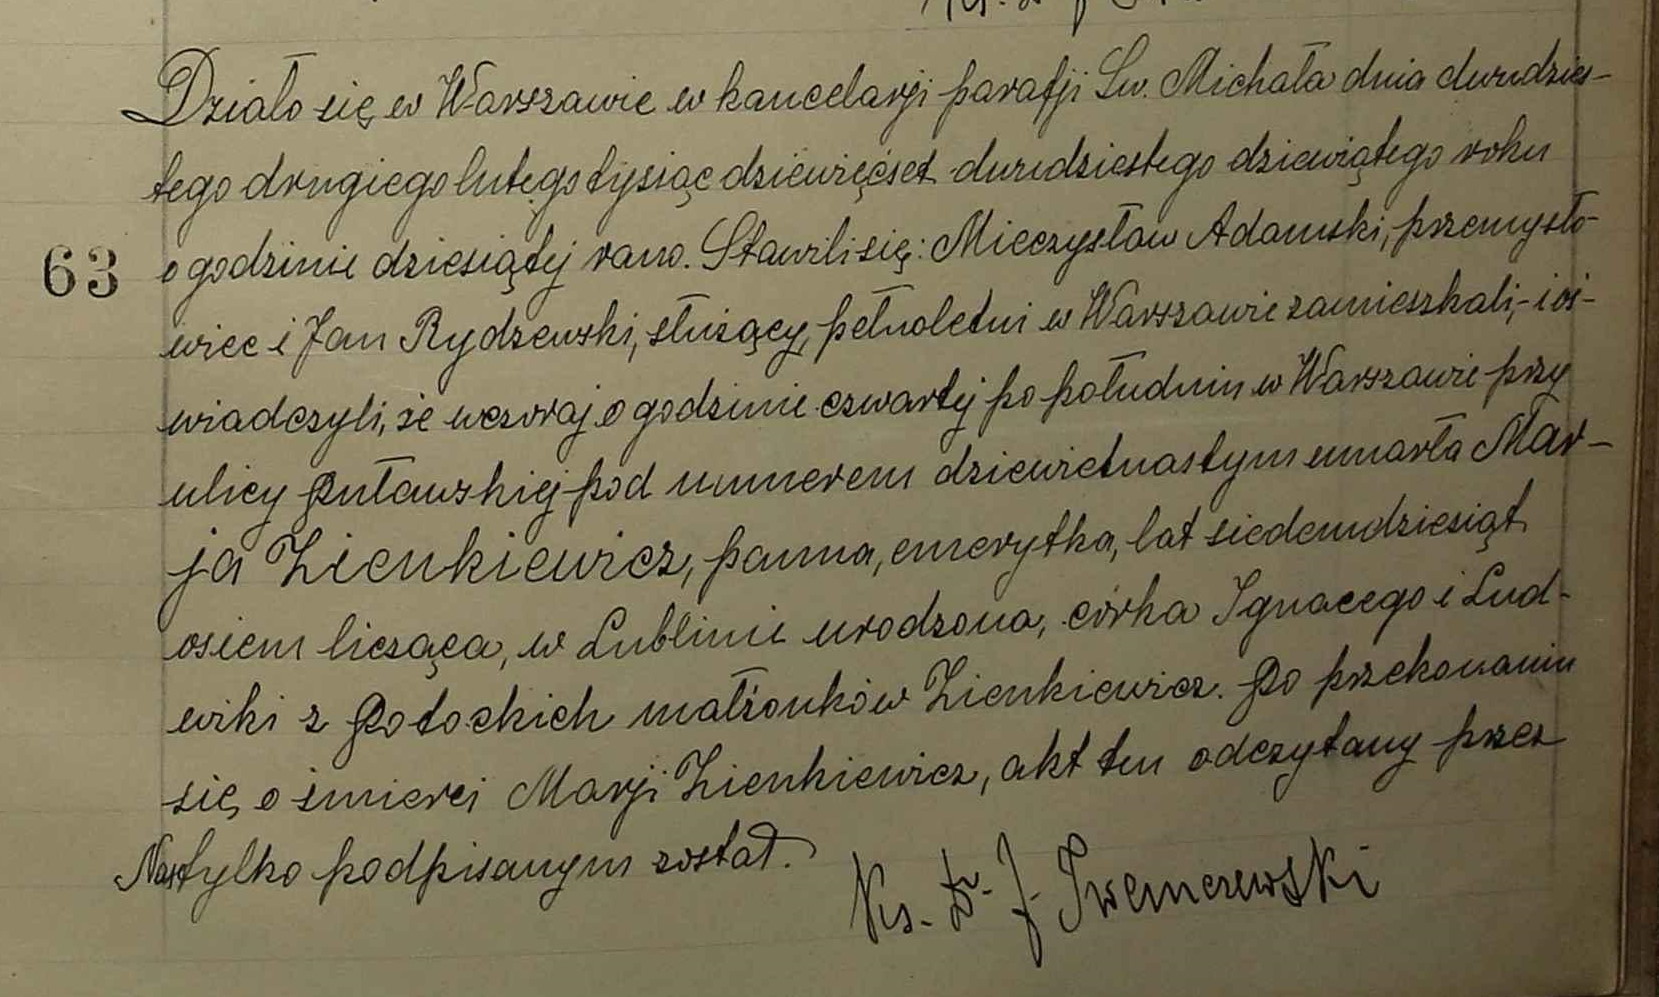 Działo się w Warszawie w kancelarji parafji Św. Michała dnia dwudzies-
tego drugiego lutego tysiąc dziewięćset dwudziestego dziewiątego roku
63 o godzinie dziesiątej rano. Stawili się: Mieczysław Adamski, przemysło-
wiec i Jan Rydzewski, służący, pełnoletni w Warszawie zamieszkali, - i oś-
wiadczyli, że wczoraj o godzinie czwartej po południu w Warszawie przy
ulicy Puławskiej pod numerem dziewietnastym umarła Mar-
ja Zienkiewicz, panna, emerytka, lat siedemdziesiąt
osiem licząca, w Lublinie urodzona, córka Ignacego i Lud-
wiki z Potockich małżonków Zienkiewicz. Po przekonaniu
się o śmierci Marji Zienkiewicz, akt ten odczytany przez
Nas tylko podpisanym został.
Ks. Dr. J.